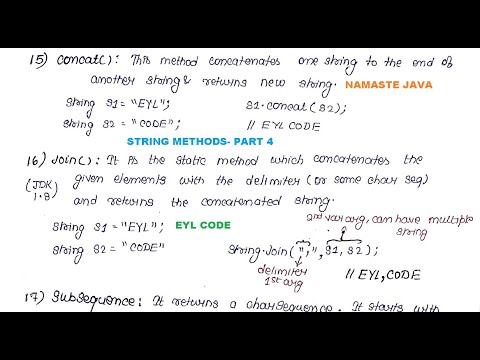 15) concat(): This method concatenates one string to the end of
another string & returns new string. NAMASTE JAVA
String S1 = "EYL"; S1.concat(S2);
String S2 = "CODE"; // EYL CODE
STRING METHODS- PART 4
16) Join(): It is the static method which concatenates the
(JDK 1.8) given elements with the delimiter (or some char seq)
and returns the concatenated string.
String S1 = "EYL"; EYL CODE
2nd var arg, can have multiple
string
String S2 = "CODE" String.Join(",", S1, S2);
delimiter
1st arg
// EYL,CODE
17) Subsequence: It returns a charsequence. It starts with